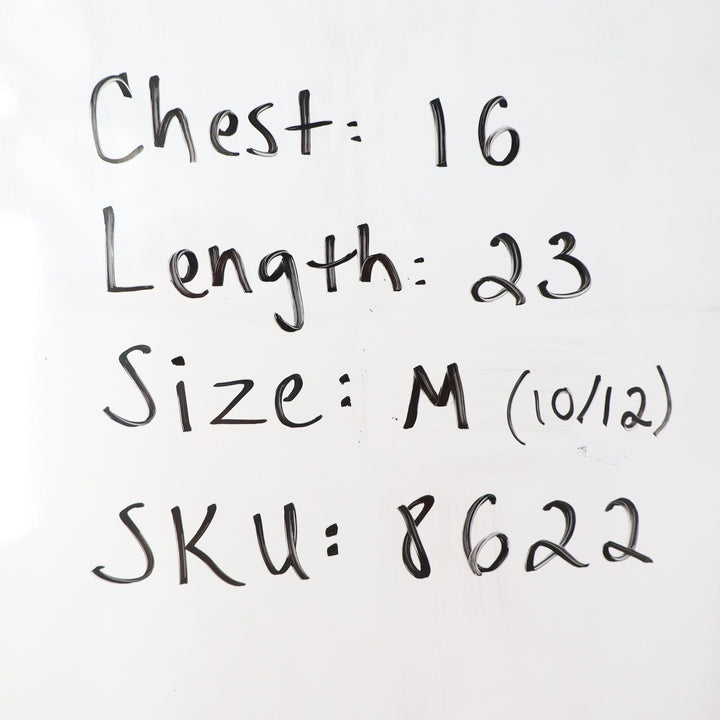 Chest: 16
Length: 23
Size: M (10/12)
SKU: 8622